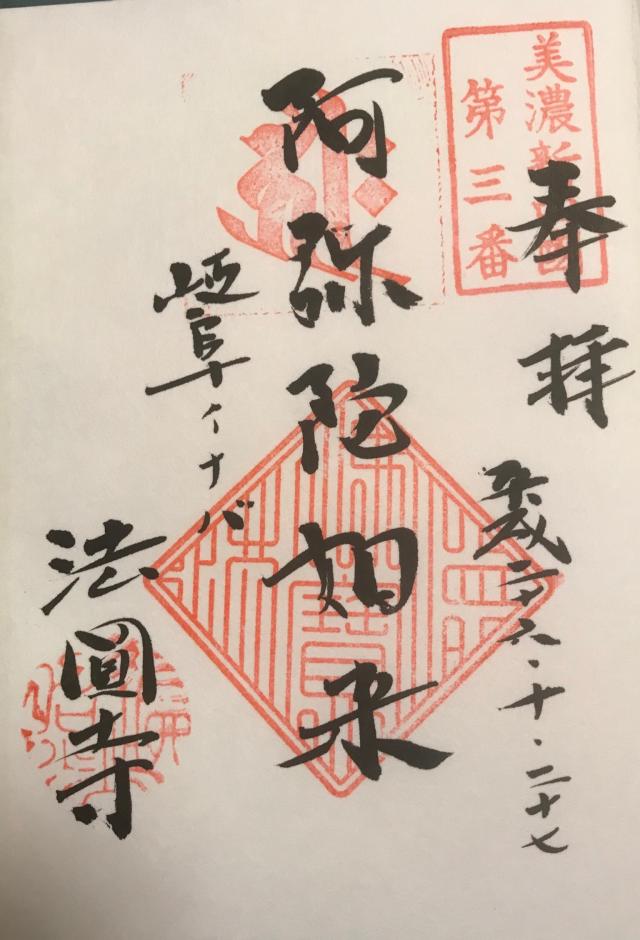 美濃新四國
第三番
奉拝
平成二十六・十・二十七
阿弥陀如来
岐阜イナバ
法圓寺